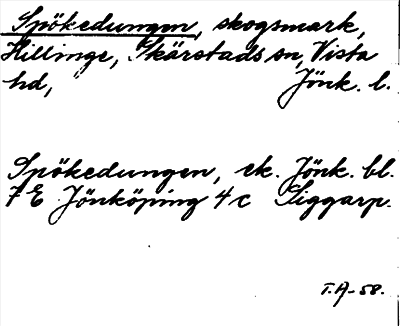 Spökedungen, skogsmark,
Hillinge, Skärstads sn, Vista
hd, Jönk. l.
Spökedungen, ek. Jönk. bl.
7 E Jönköping 4 c Siggarp.
T.A-58.